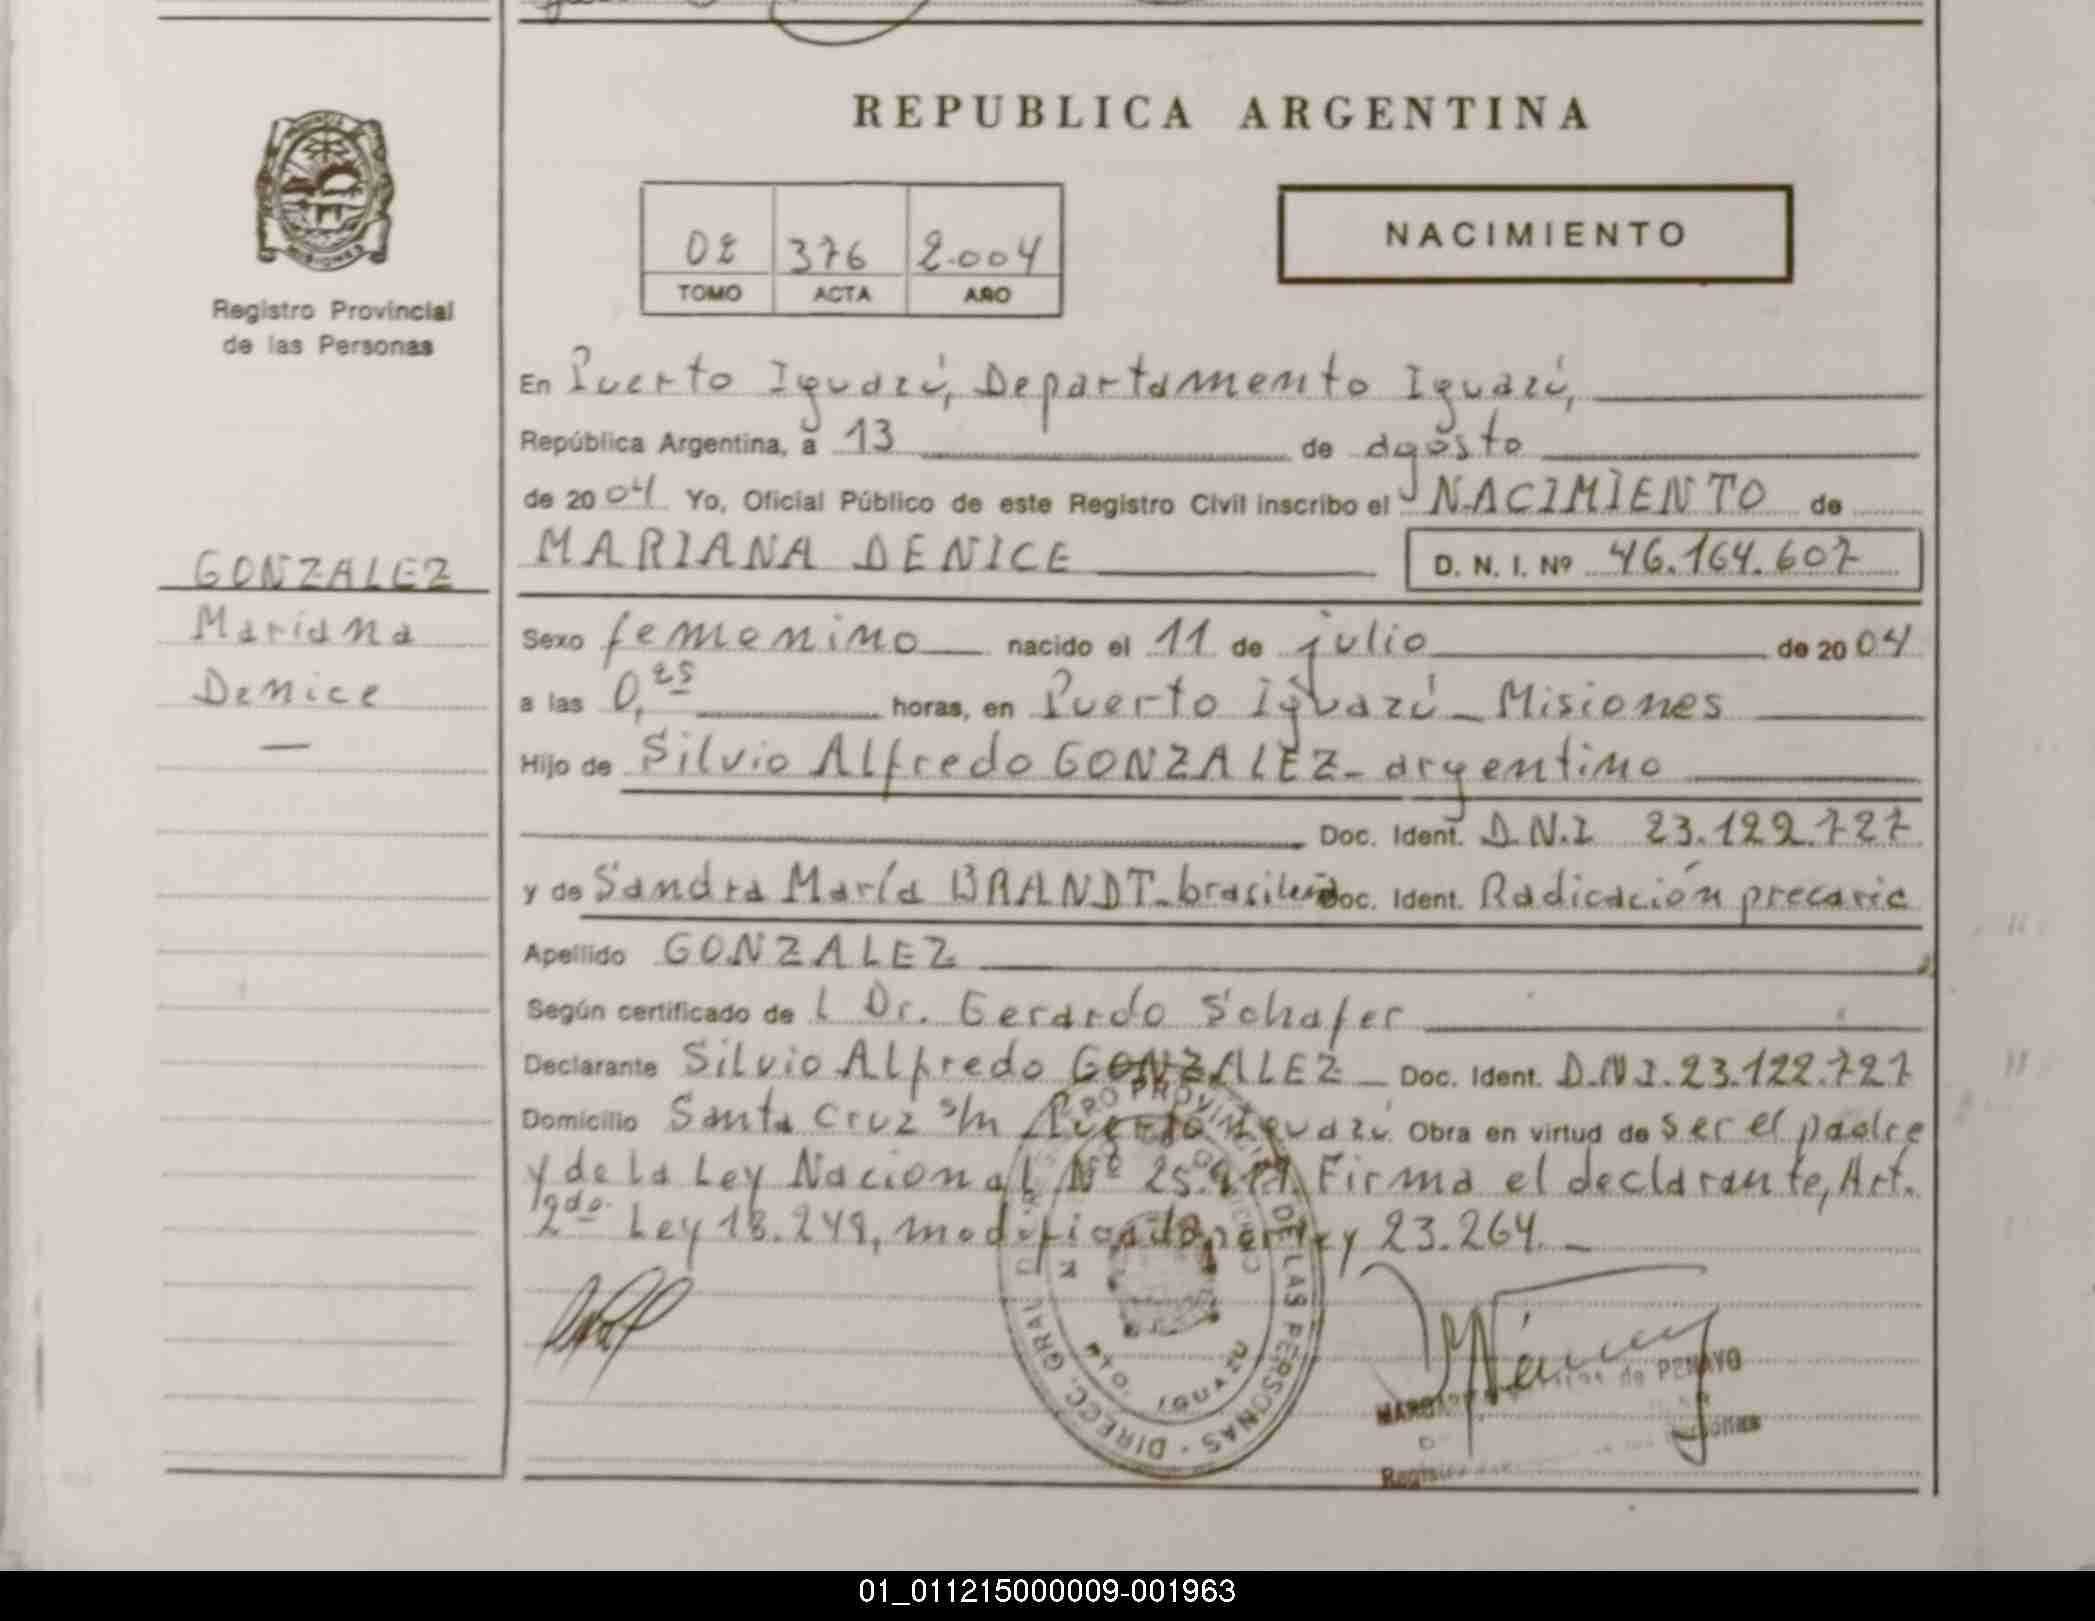 REPUBLICA ARGENTINA
MISIONES
Registro Provincial
de las Personas
02 376 2.004
TOMO ACTA AÑO
NACIMIENTO
En Puerto Iguazú, Departamento Iguazú,
República Argentina, a 13 de agosto
de 2004 Yo, Oficial Público de este Registro Civil inscribo el NACIMIENTO de
MARIANA DENICE D. N. I. Nº 46.164.607
GONZALEZ
Mariana
Denice
Sexo femenino nacido el 11 de julio de 2004
a las 0,25 horas, en Puerto Iguazú - Misiones
Hijo de Silvio Alfredo GONZALEZ - argentino
Doc. Ident. D.N.I 23.122.727
y de Sandra María BRANDT - brasileña Doc. Ident. Radicación precaria
Apellido GONZALEZ
Según certificado de l Dr. Gerardo Schafer
Declarante Silvio Alfredo GONZALEZ - Doc. Ident. D.N.I. 23.122.727
Domicilio Santa Cruz s/n Puerto Iguazú Obra en virtud de ser el padre
y de la Ley Nacional Nº Firma el declarante, Art.
2do Ley 18.248, modificado por Ley 23.264. -
DIRECC. GRAL DE LAS PERSONAS
PTO. IGUAZU
de PENAYO
01_011215000009-001963